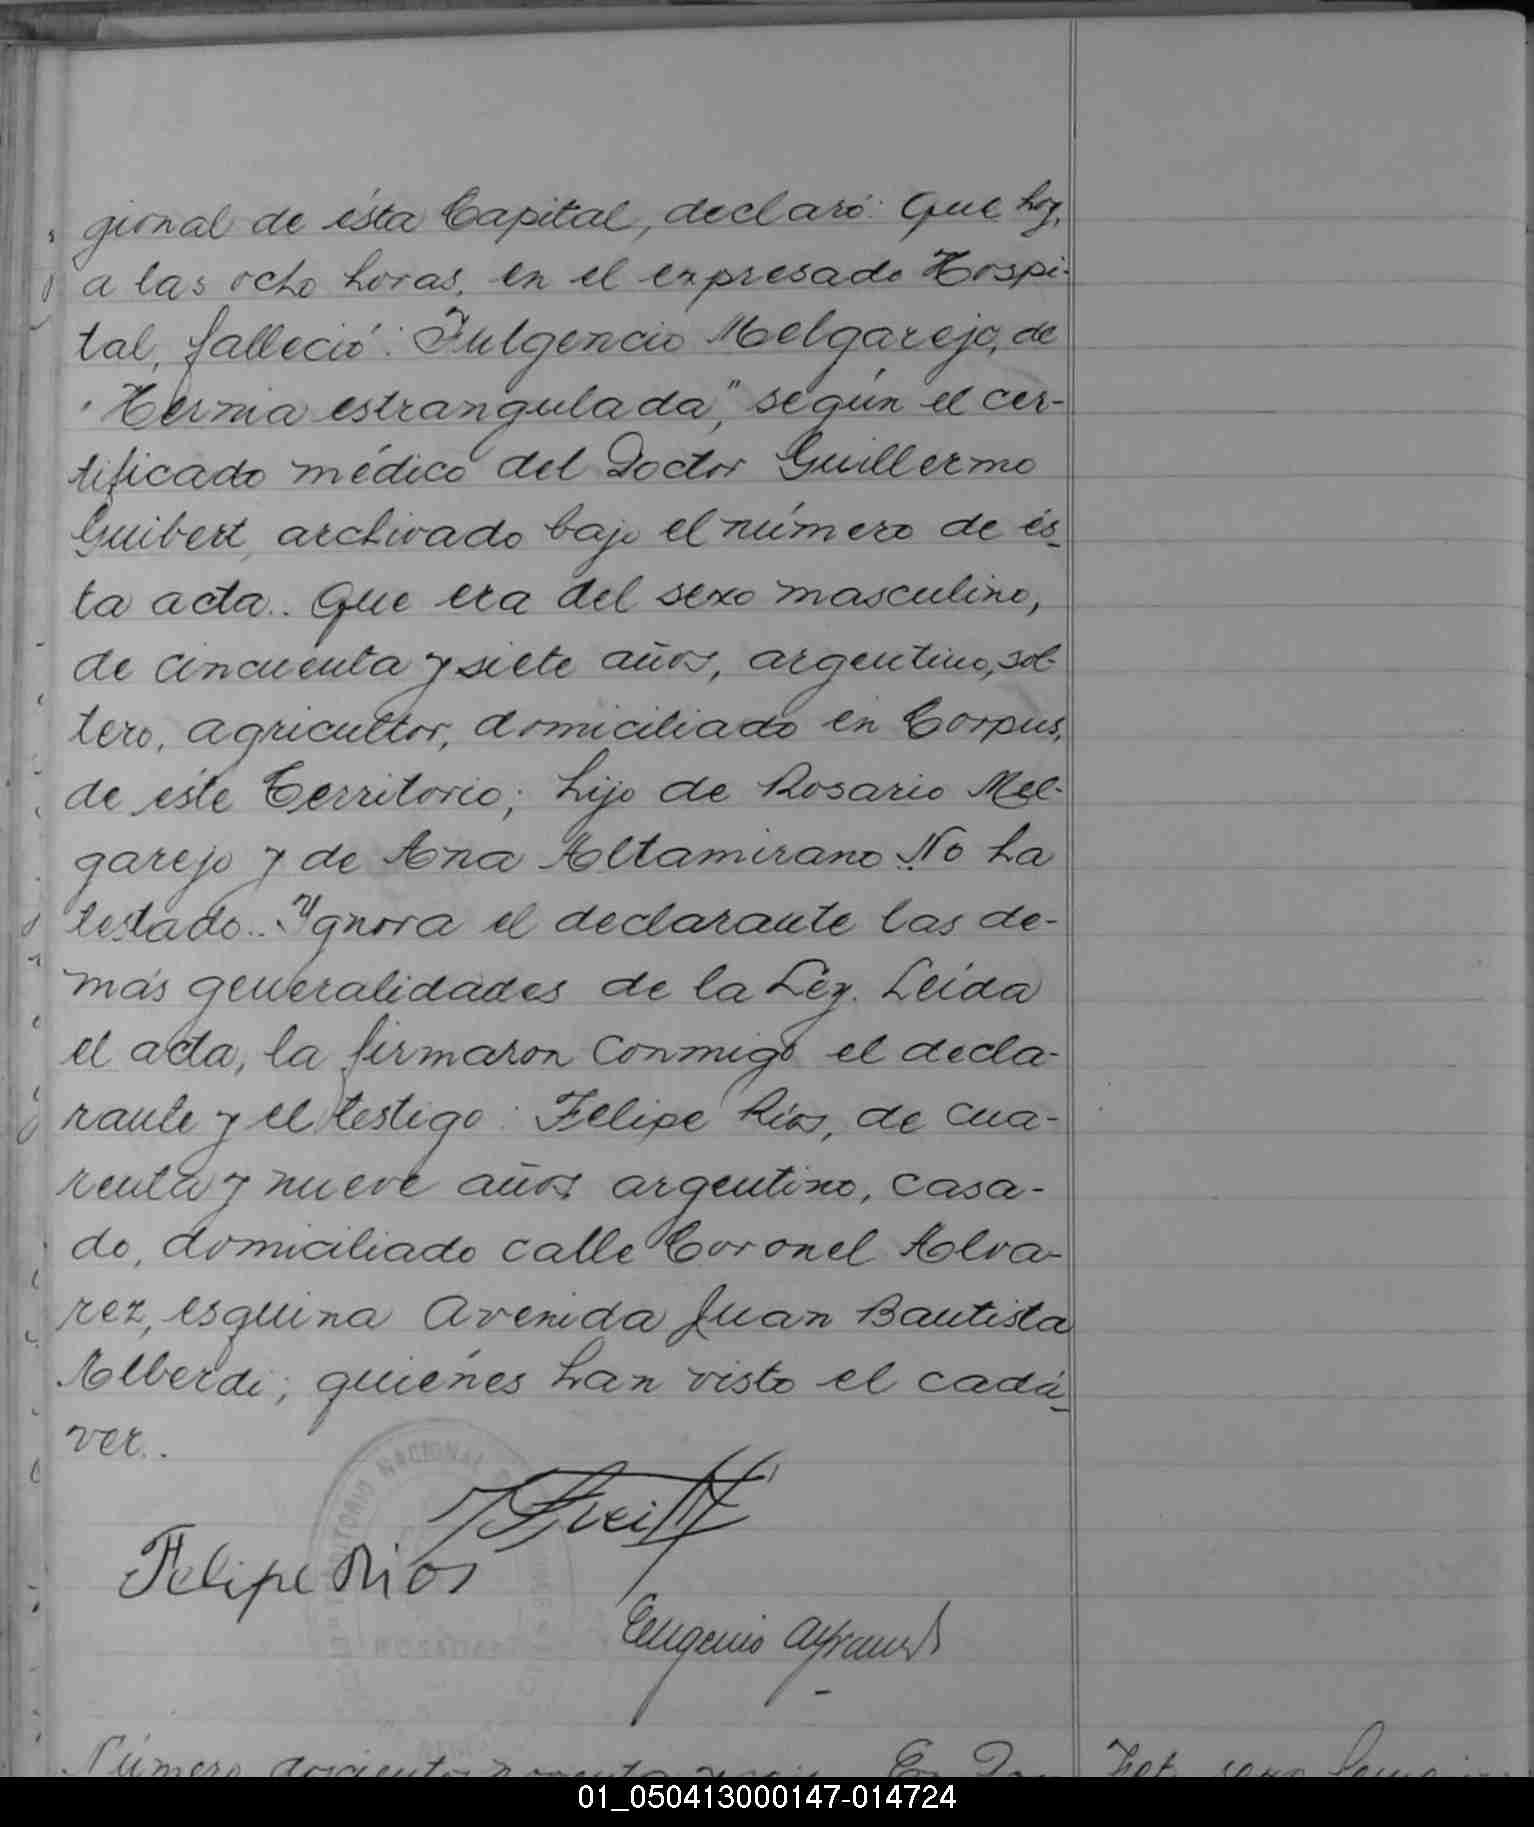 gional de ésta Capital, declaró: Que hoy,
a las ocho horas, en el expresado Hospi-
tal, falleció: Fulgencio Melgarejo, de
"Hernia estrangulada", según el cer-
tificado médico del Doctor Guillermo
Guibert, archivado bajo el número de és-
ta acta.. Que era del sexo masculino,
de cincuenta y siete años, argentino, sol-
tero, agricultor, domiciliado en Corpus,
de éste Territorio; hijo de Rosario Mel-
garejo y de Ana Altamirano. No ha
testado.. Ygnora el declarante las de-
más generalidades de la Ley. Leída
el acta, la firmaron conmigo el decla-
rante y el testigo: Felipe Ríos, de cua-
renta y nueve años argentino, casa-
do, domiciliado calle Coronel Alva-
rez, esquina Avenida Juan Bautista
Alberdi; quiénes han visto el cadá-
ver..
TERRITORIO NACIONAL
Felipe Rios
Eugenio
Número doscientos noventa En
01_050413000147-014724